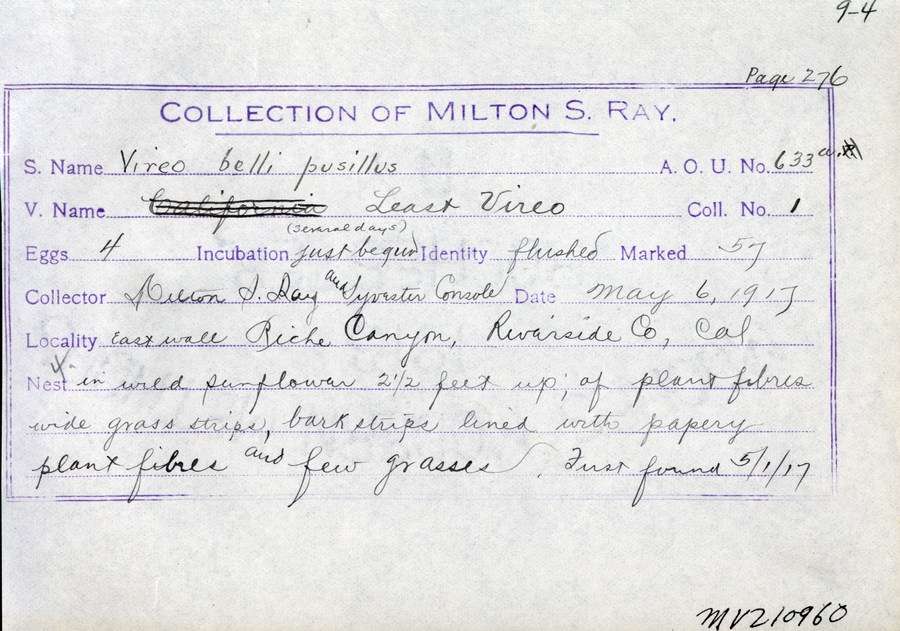 9-4
Page 276
COLLECTION OF MILTON S. RAY.
S. Name Vireo belli pusillus A. O. U. No. 633a.
V. Name California Least Vireo Coll. No. 1
(several days)
Eggs 4 Incubation just begun Identity flushed Marked 57
Collector Milton S. Ray and Sylvester Console Date May 6, 1917
Locality East wall Riche Canyon, Riverside Co, Cal
Nest in wild sunflower 2 1/2 feet up; of plant fibres
wide grass strips, bark strips lined with papery
plant fibres and few grasses. First found 5/1/17
MVZ10960